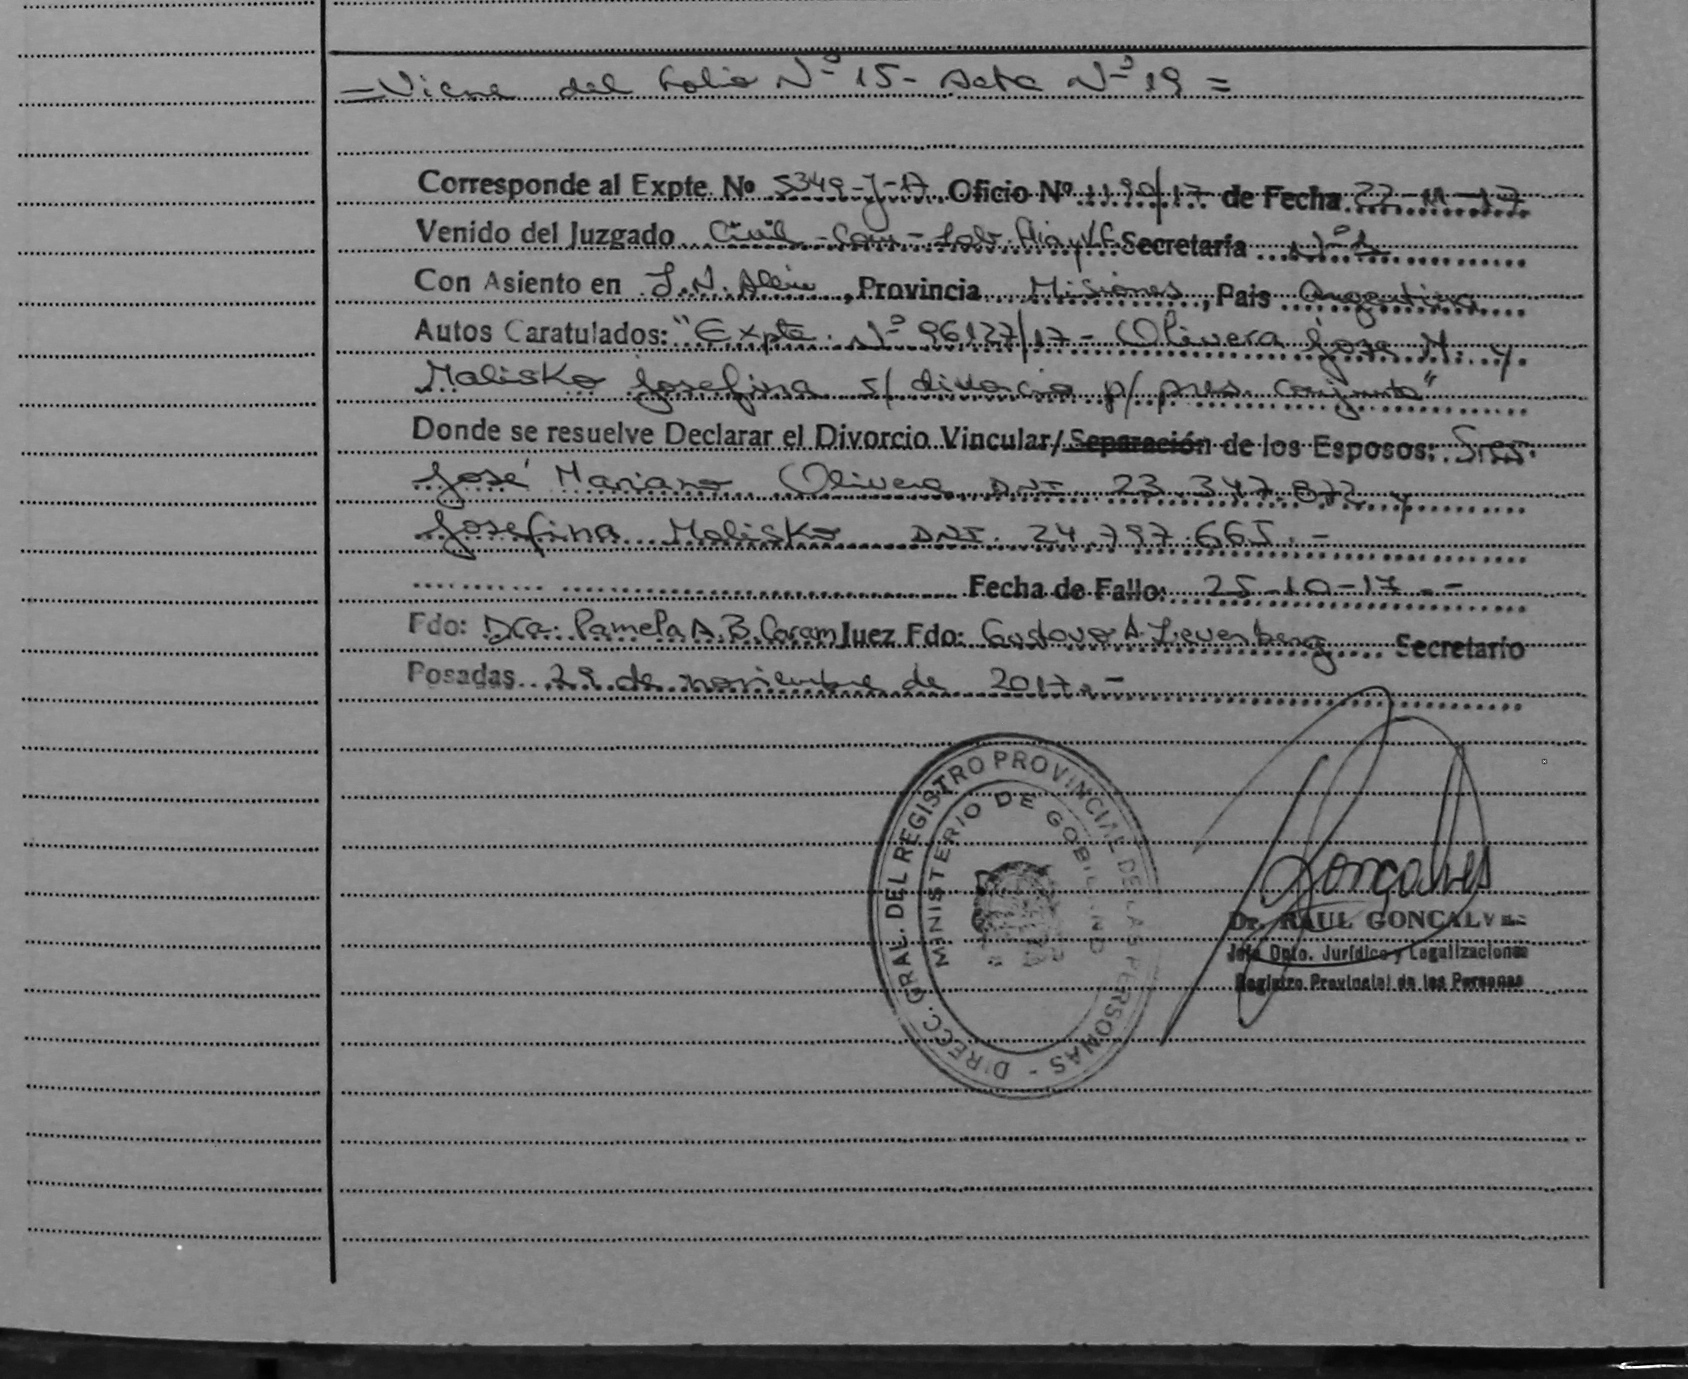 = Viene del Folio Nº 15 - Acta Nº 19 =
Corresponde al Expte. Nº 5349-J-17 Oficio Nº 1190/17 de Fecha 22-11-17
Venido del Juzgado Civil - Com - Lab. Flia y V.F. Secretaría Nº 1
Con Asiento en L.N. Alem, Provincia Misiones, Pais Argentina
Autos Caratulados: "Expte. Nº 96127/17 - Olivera José M. y
Malisko Josefina s/ divorcio p/ pres. conjunta"
Donde se resuelve Declarar el Divorcio Vincular/ Separación de los Esposos: Sres.
José Mariano Olivera DNI. 23.347.872 y
Josefina Malisko DNI. 24.797.665.-
Fecha de Fallo: 25-10-17.-
Fdo: Dra. Pamela A. B. Caram Juez Fdo: Gustavo A. Secretario
Posadas 29 de noviembre de 2017.-
DIRECC. GRAL. DEL REGISTRO PROVINCIAL DE LAS PERSONAS -
MINISTERIO DE GOBIERNO
Gonçalves
Dr. RAUL GONCALVES
Jefe Dpto. Jurídico y Legalizaciones
Registro Provincial de las Personas